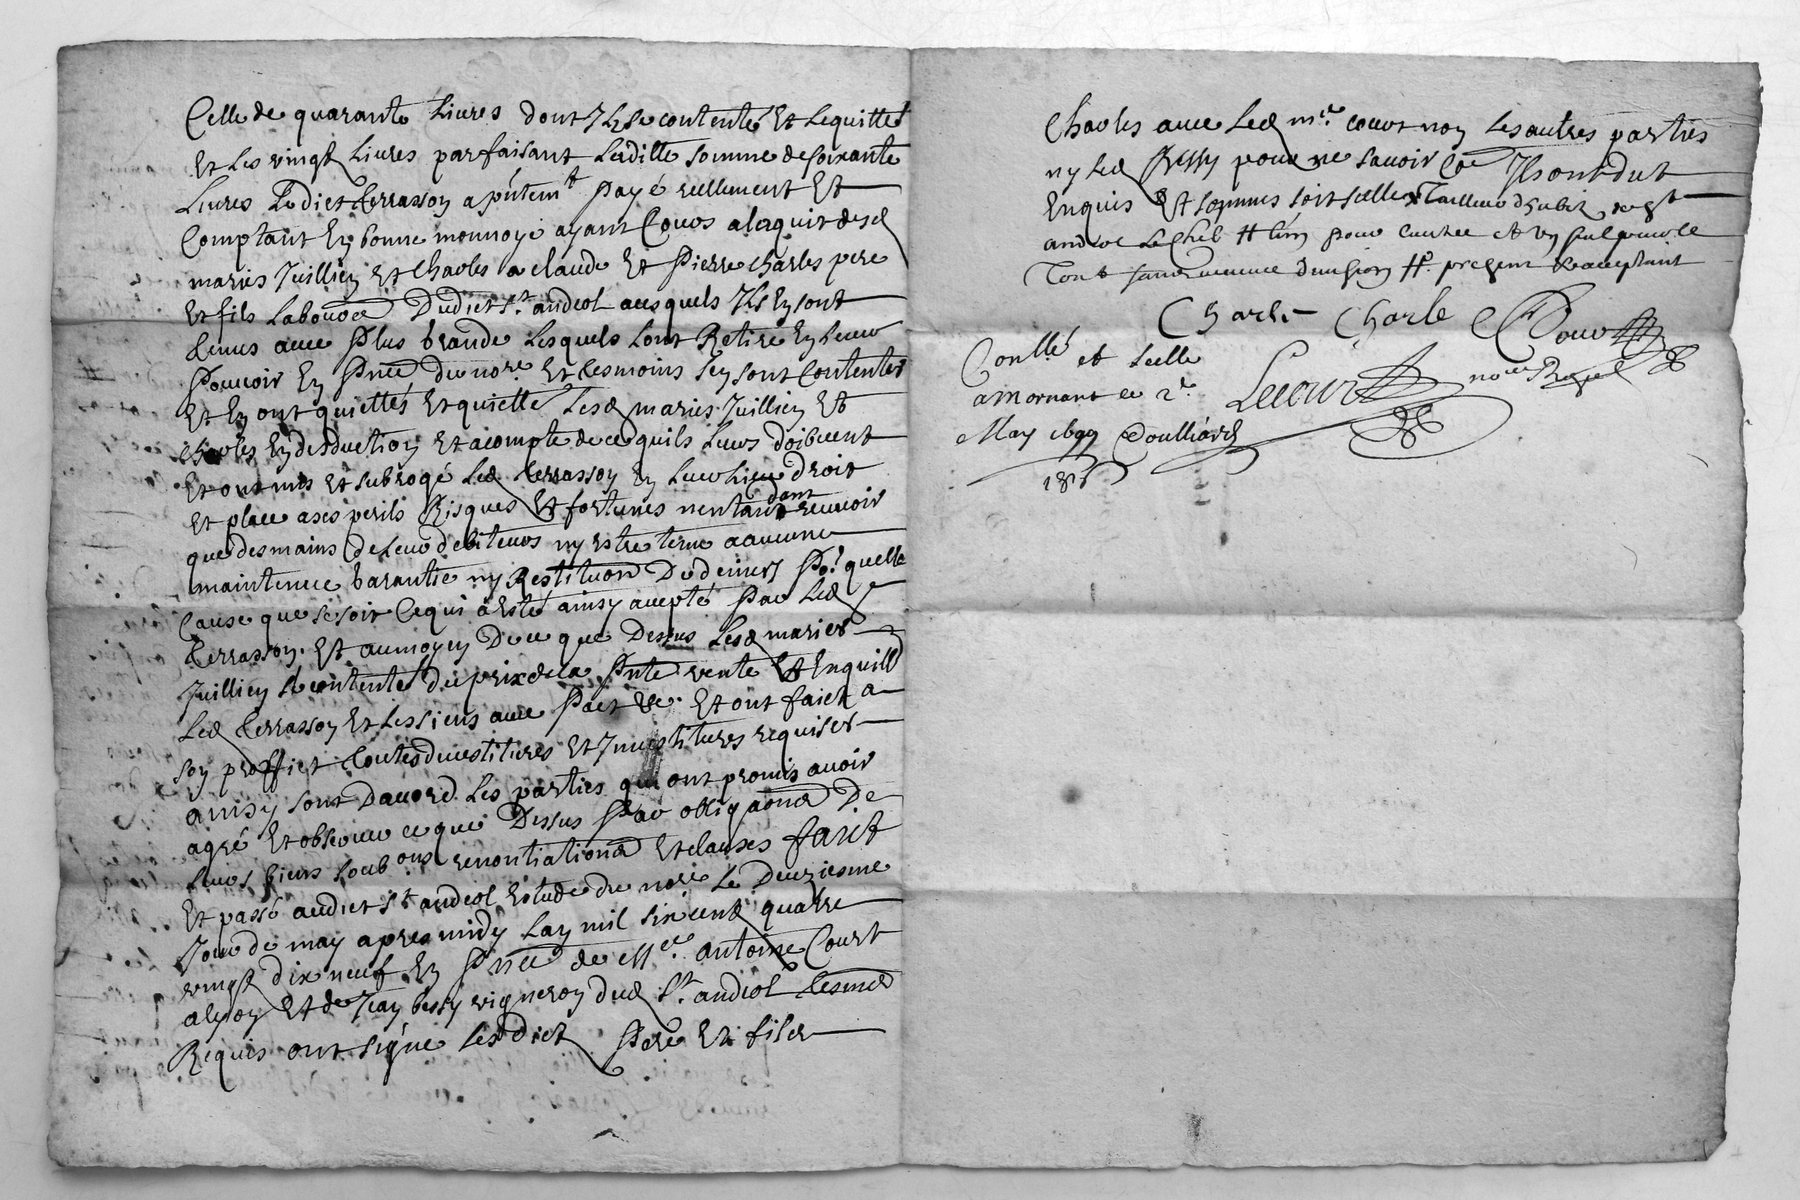 Celle de quarante Livres dont Ilz se contente et Lequitte
Et Les vingt Livres parfaisant Laditte somme de soixante
Livres Ledict Terrasson a pntemt payé reellement Et
Comptant En bonne monnoye ayant Cours a lacquit desd
maries Juillien Et Charles a claude Et Pierre charles pere
Et fils Laboure Dudict St andeol ausquels Ils En sont
tenus avec Plus Grande Lesquels lont Retiré En Leur
Pouvoir En Pnce du nore Et tesmoins sen sont Contentes
Et En ont quiettés Et quiette Lesd maries Juillien Et
charles En desduction Et acompte de ce quils Leurs doibvent
Et ont mis Et subrogé Led Terrasson En Leur Lieu droit
Et place a ses perils Risques Et fortunes nentandant recevoir
que des mains de Leur debiteurs ny estre tenu a aucune
maintenue Garantie ny Restituon De deniers Pr quelle
Cause que se soit Ce qui a Esté ainsy accepté Par Led
Terrasson. Et au moyen De ce que Dessus Lesd maries
Juillien se contente du prix de la Pnte vente Et En quitte
Led Terrasson Et Les siens avec Pact &c. Et ont faict a
son proffict toutes devestitures Et Investitures requises
ainsy sont Daccord Les parties qui ont promis avoir
agré Et observer ce que Dessus Par obligaons De
Leurs biens soub ons renontiations Et clauses faict
Et passé audict St andeol Estude du nore Le Deuziesme
Jour de may apres midy Lan mil six cent quatre
vingt dix neuf En Pnce de Mre antoine Court
Et de Jean bessy vigneron dud St andeol tesmoins
Requis ont signe Lesdict Pere Et fils
Charles avec Led mre court non Les autres parties
ny Led Bessy pour ne savoir Ce Ilz ont dut
Enquis Et sommés soit scellé
Charle Charle Court
Conllé et scellé
a Mornant ce 2e
May 1699